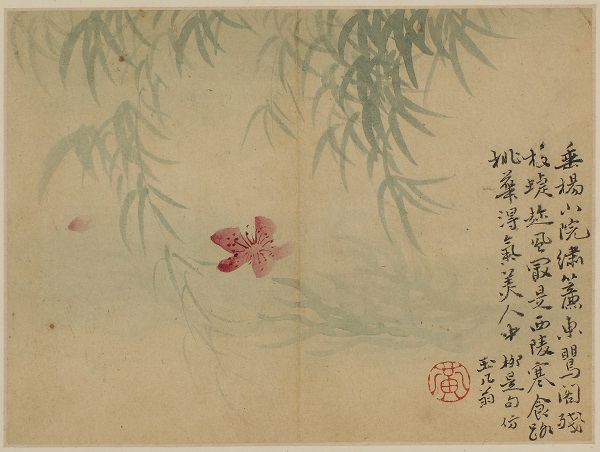 垂楊小院繡簾東鶯閣殘
枝蝶趂風冣是西陵寒食路
桃華得氣美人中 柳是句仿
玉几翁
黃